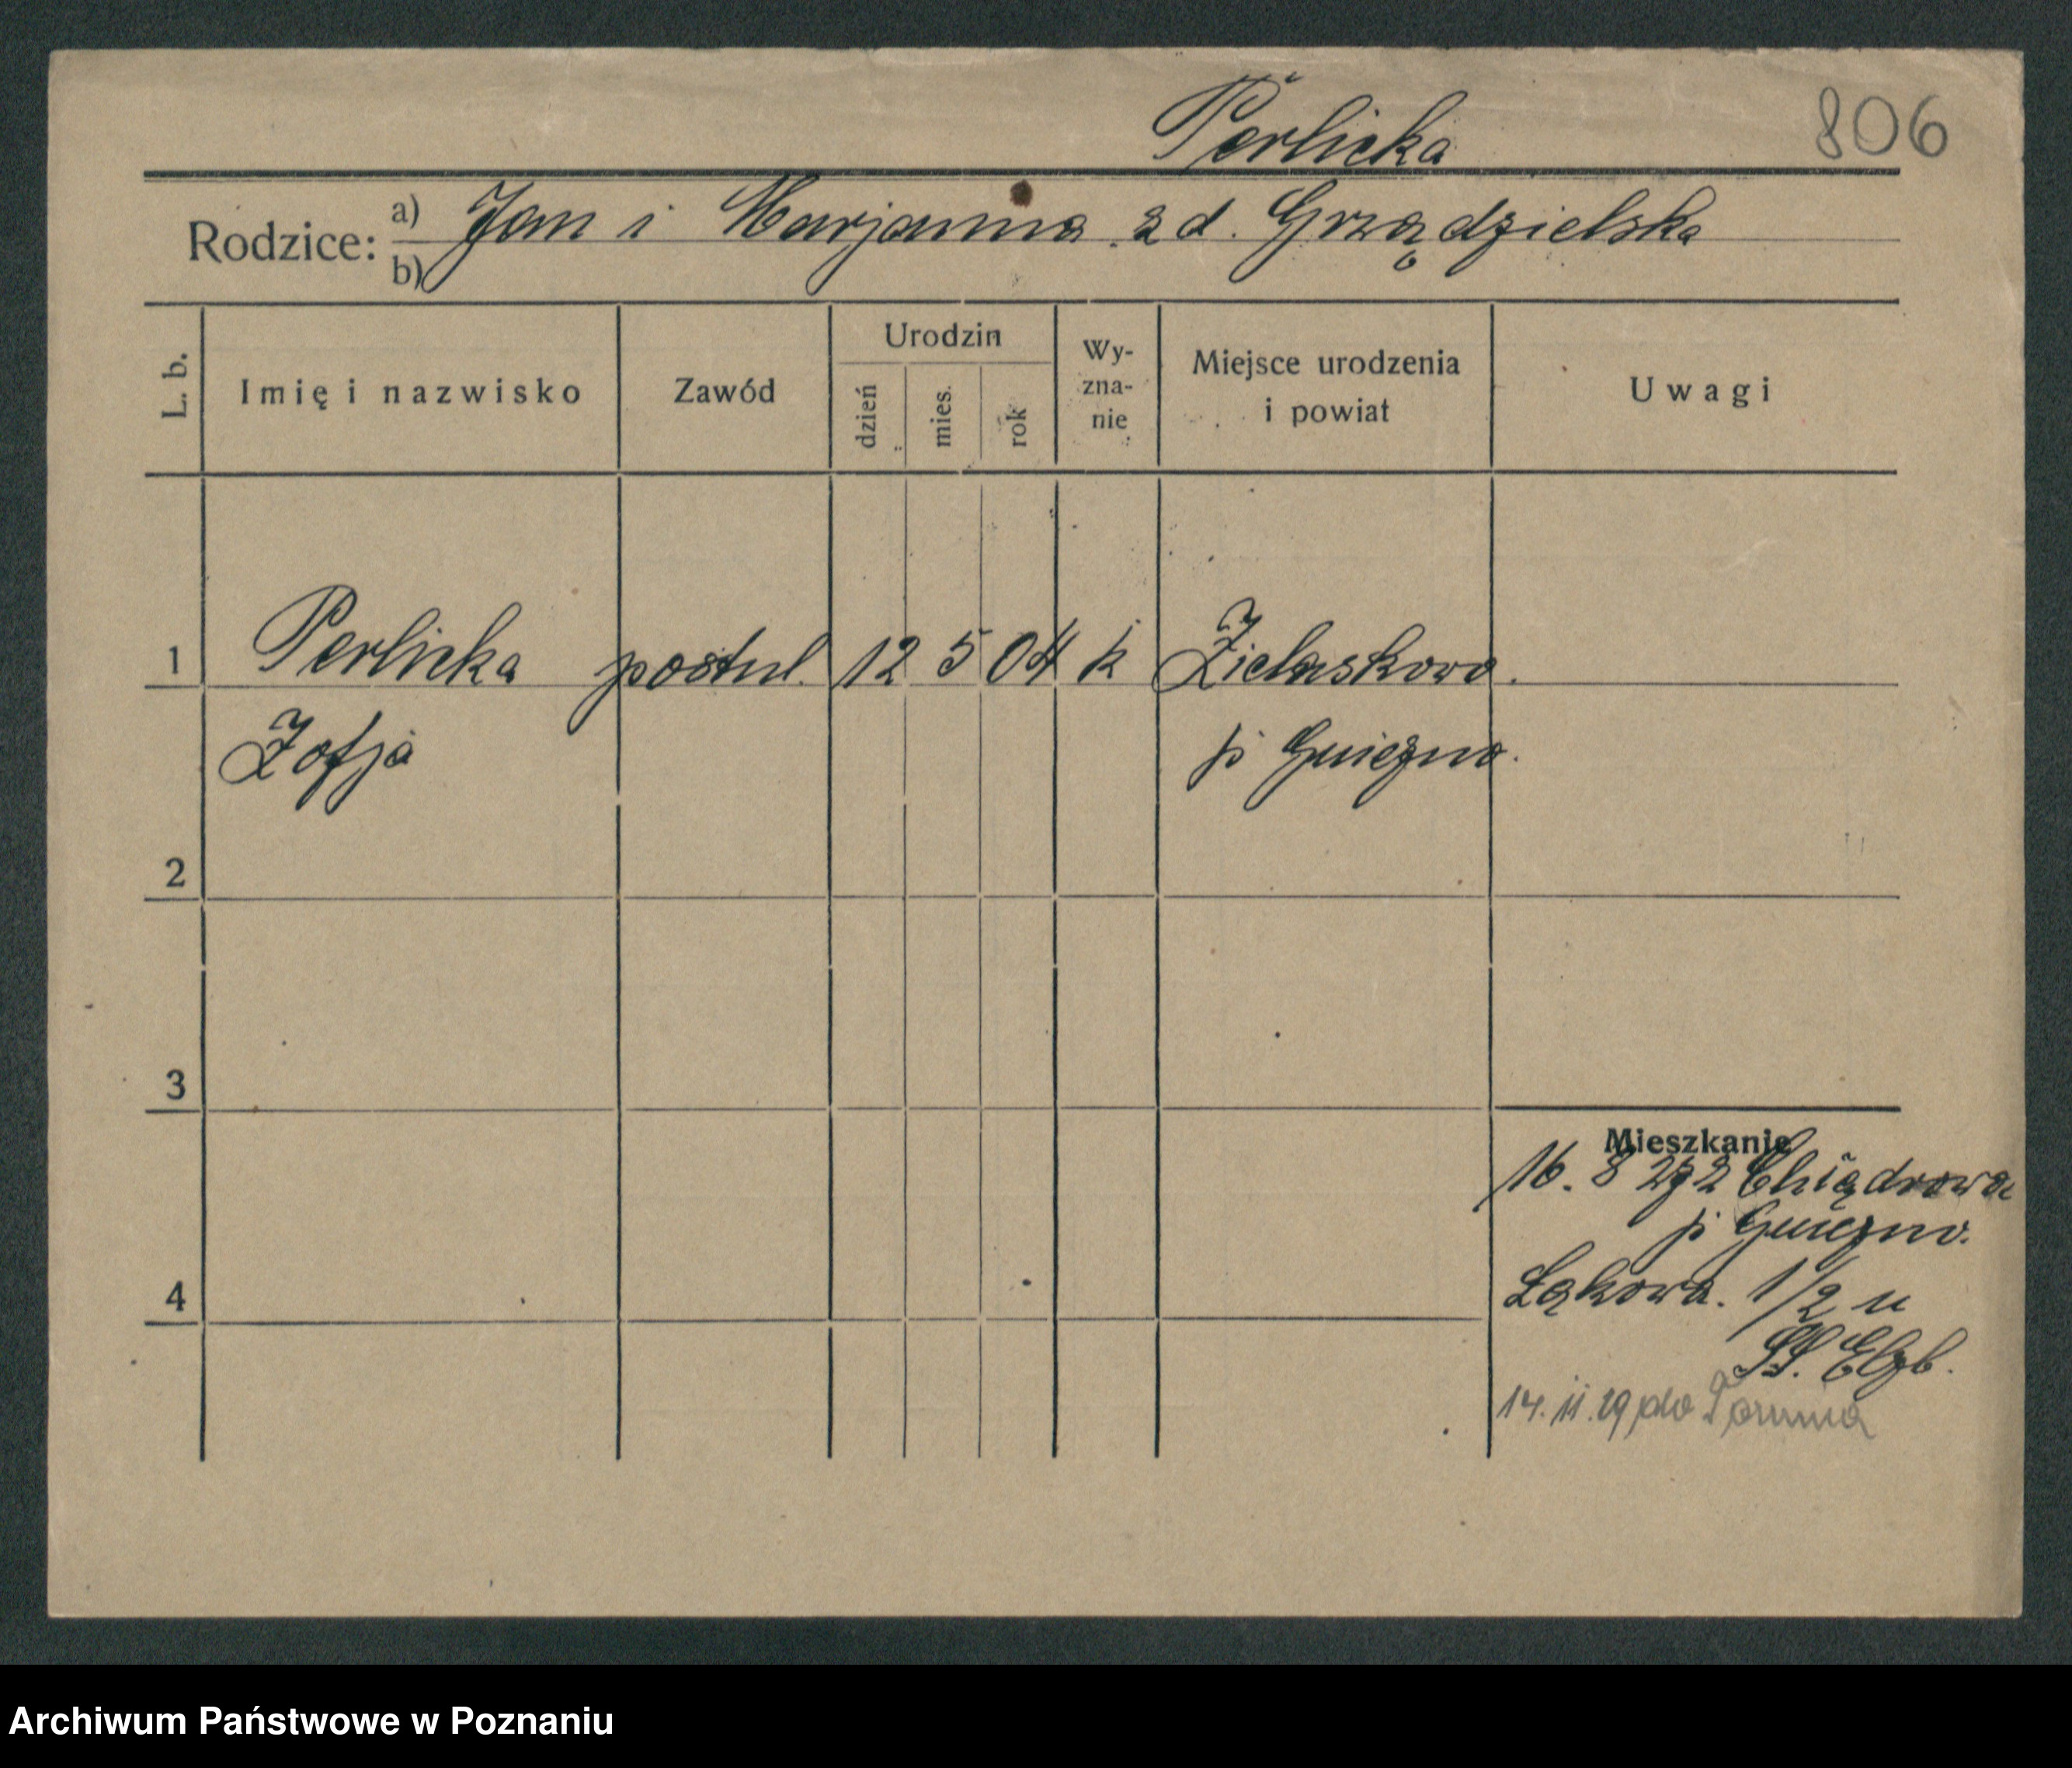 Perlicka 806
Rodzice: a) Jan i Marjanna zd. Grządzielska
b)
L. b. Imię i nazwisko Zawód Urodzin dzień mies. rok Wy-zna-nie Miejsce urodzenia i powiat Uwagi
1 Perlicka postul. 12 5 04 k Zielaskowo.
Zofja p Gniezno.
2
3
Mieszkanie
16. 8 29 z
p Gniezno.
4 Łąkowa. 1/2 u
SS. Elzb.
14. 11. 29 do Torunia
Archiwum Państwowe w Poznaniu